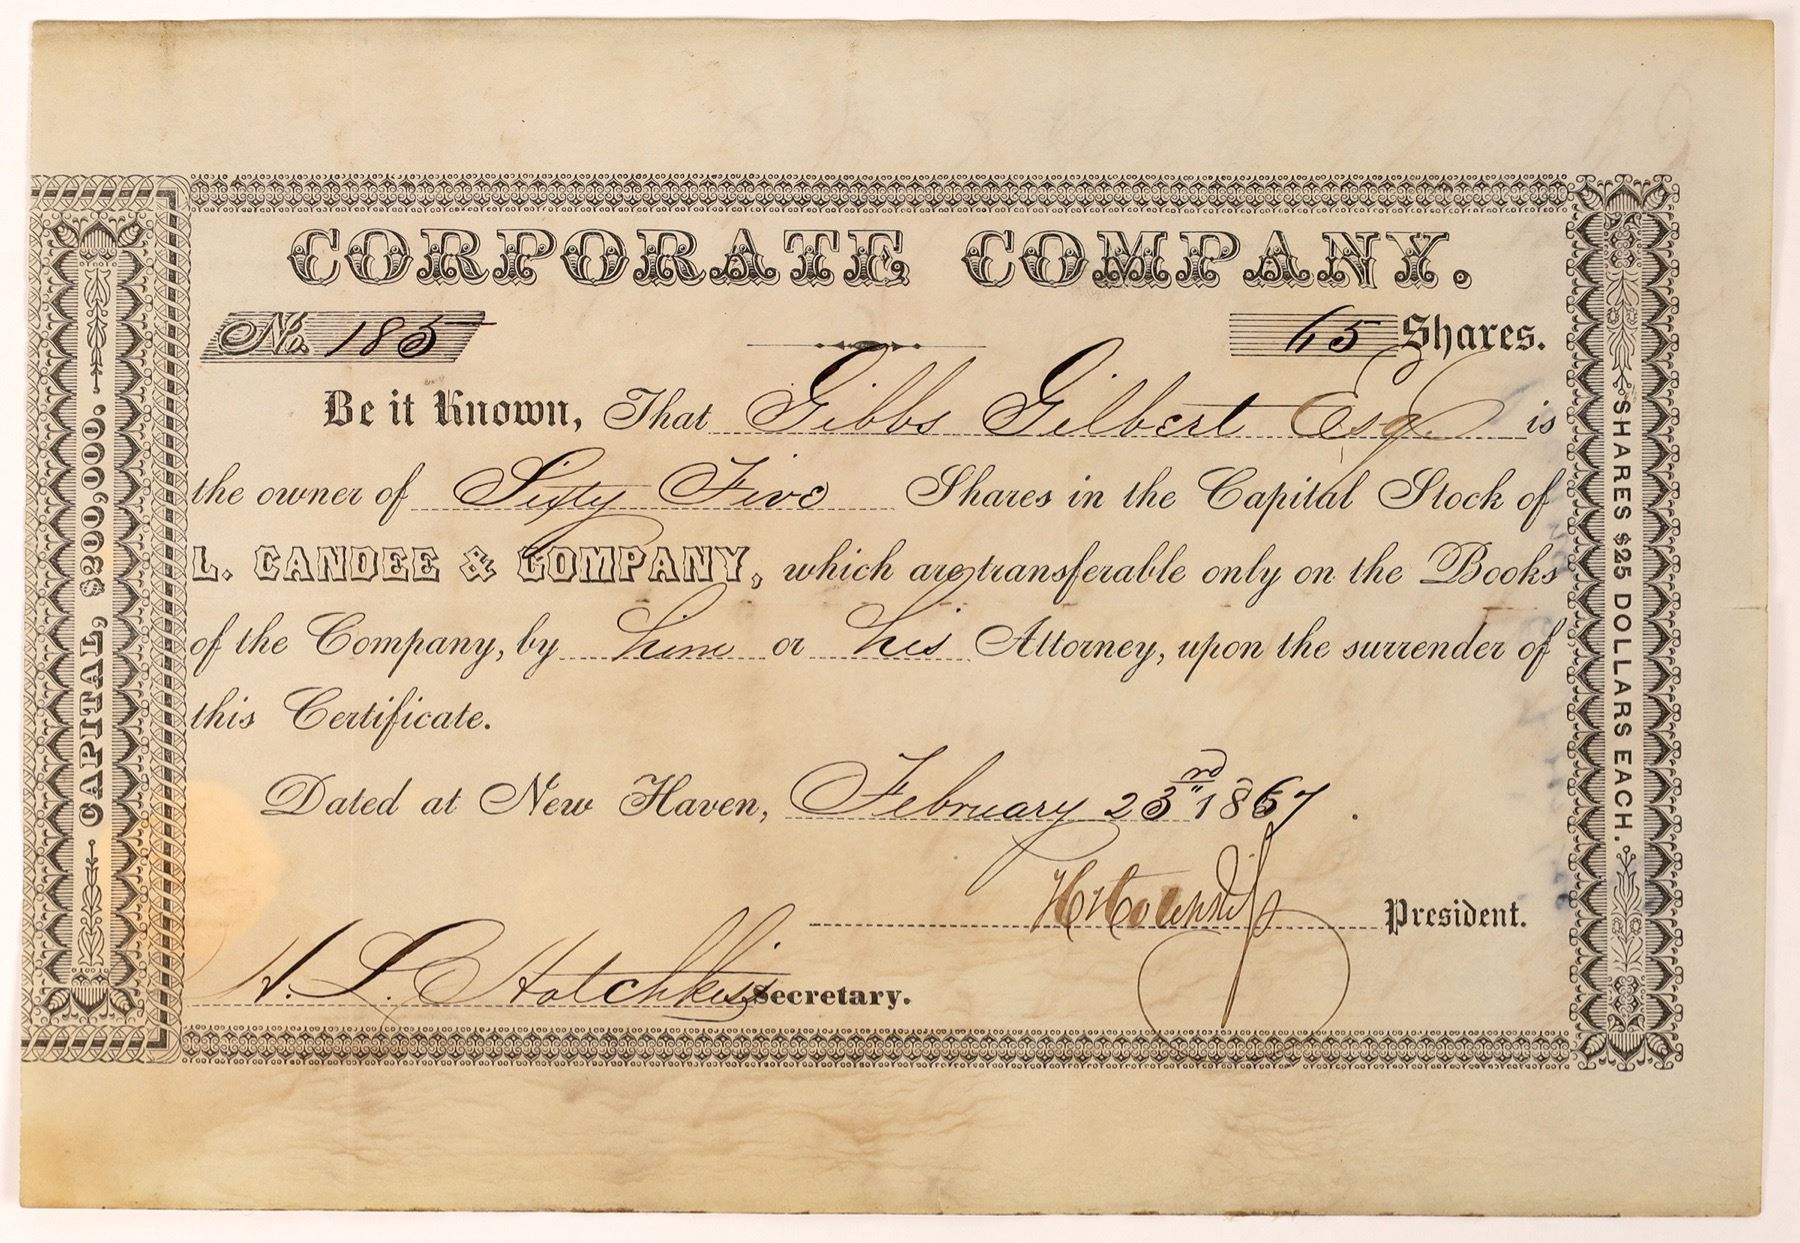 CORPORATE COMPANY.
No. 185
65 Shares.
Be it Known, That Gibbs Gilbert Esq. is
the owner of Sixty Five Shares in the Capital Stock of
L. CANDEE & COMPANY, which are transferable only on the Books
of the Company, by him or his Attorney, upon the surrender of
this Certificate.
Dated at New Haven, February 23rd 1867.
President.
H. L. Hotchkiss Secretary.
CAPITAL, $200,000.
SHARES $25 DOLLARS EACH.